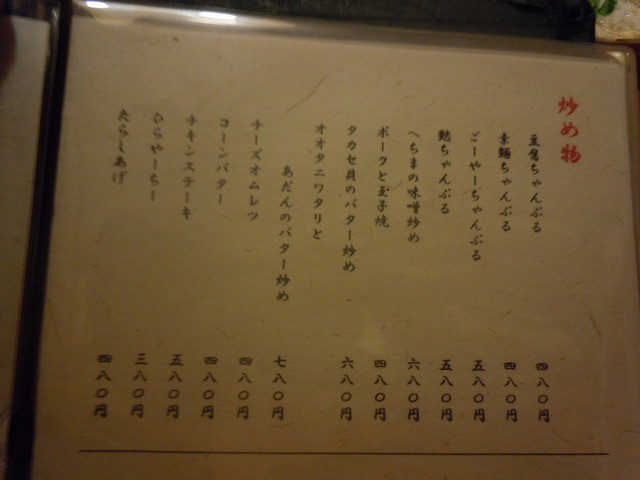 炒め物
豆腐ちゃんぷる 四八〇円
素麺ちゃんぷる 四八〇円
ごーやーちゃんぷる 五八〇円
麩ちゃんぷる 五八〇円
へちまの味噌炒め 六八〇円
ポークと玉子焼 四八〇円
タカセ貝のバター炒め 六八〇円
オオタニワタリと
あだんのバター炒め 七八〇円
チーズオムレツ 四八〇円
コーンバター 四八〇円
チキンステーキ 五八〇円
ひらやーちー 三八〇円
火らしあげ 四八〇円